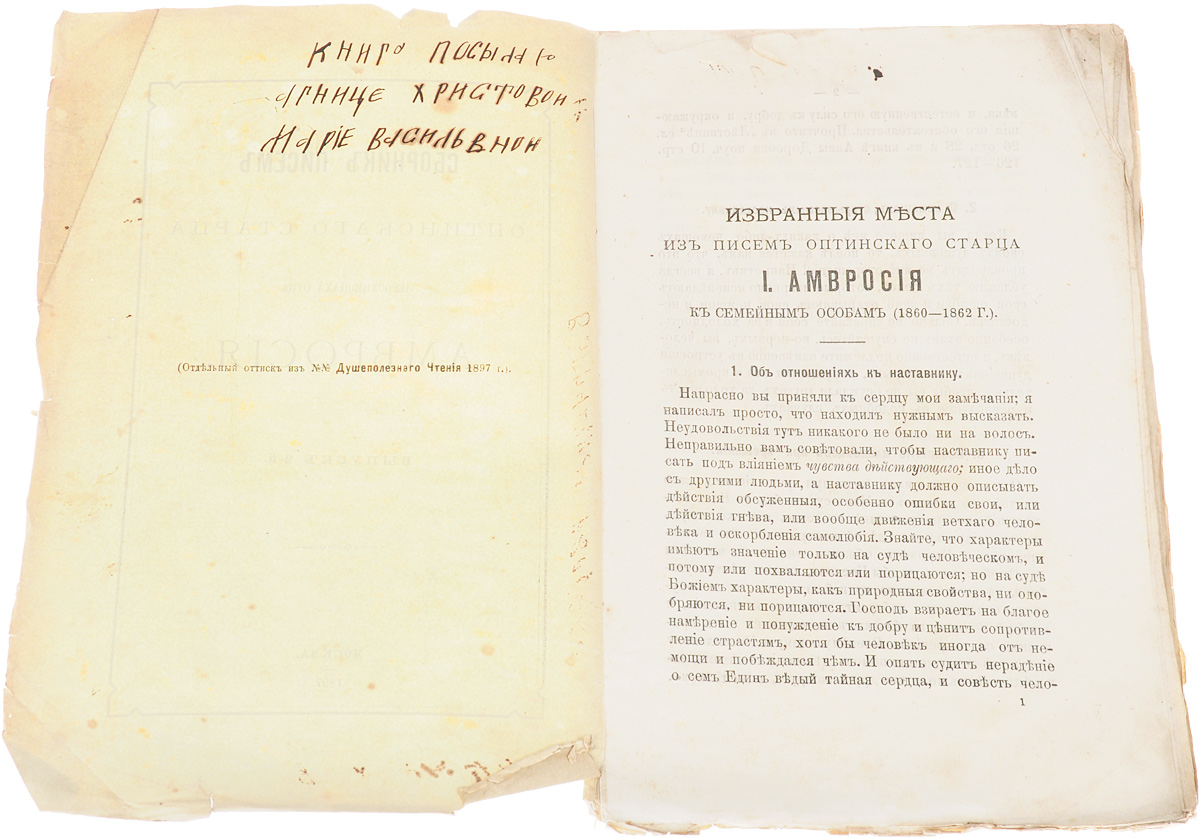 книга посылаю
агнице христовои
Марiе василь внои
(Отдѣльный оттискъ изъ №№ Душеполезнаго Чтенія 1897 г.).
ИЗБРАННЫЯ МѢСТА
ИЗЪ ПИСЕМЪ ОПТИНСКАГО СТАРЦА
І. АМВРОСІЯ
КЪ СЕМЕЙНЫМЪ ОСОБАМЪ (1860—1862 Г.).
1. Объ отношеніяхъ къ наставнику.
Напрасно вы приняли къ сердцу мои замѣчанія; я
написалъ просто, что находилъ нужнымъ высказать.
Неудовольствія тутъ никакого не было ни на волосъ.
Неправильно вамъ совѣтовали, чтобы наставнику пи-
сать подъ вліяніемъ чувства дѣйствующаго; иное дѣло
съ другими людьми, а наставнику должно описывать
дѣйствія обсуженныя, особенно ошибки свои, или
дѣйствія гнѣва, или вообще движенія ветхаго чело-
вѣка и оскорбленія самолюбія. Знайте, что характеры
имѣютъ значеніе только на судѣ человѣческомъ, и
потому или похваляются или порицаются; но на судѣ
Божіемъ характеры, какъ природныя свойства, ни одо-
бряются, ни порицаются. Господь взираетъ на благое
намѣреніе и понужденіе къ добру и цѣнитъ сопротив-
леніе страстямъ, хотя бы человѣкъ иногда отъ не-
мощи и побѣждался чѣмъ. И опять судитъ нерадѣніе
о семъ Единъ вѣдый тайная сердца, и совѣсть чело-
1